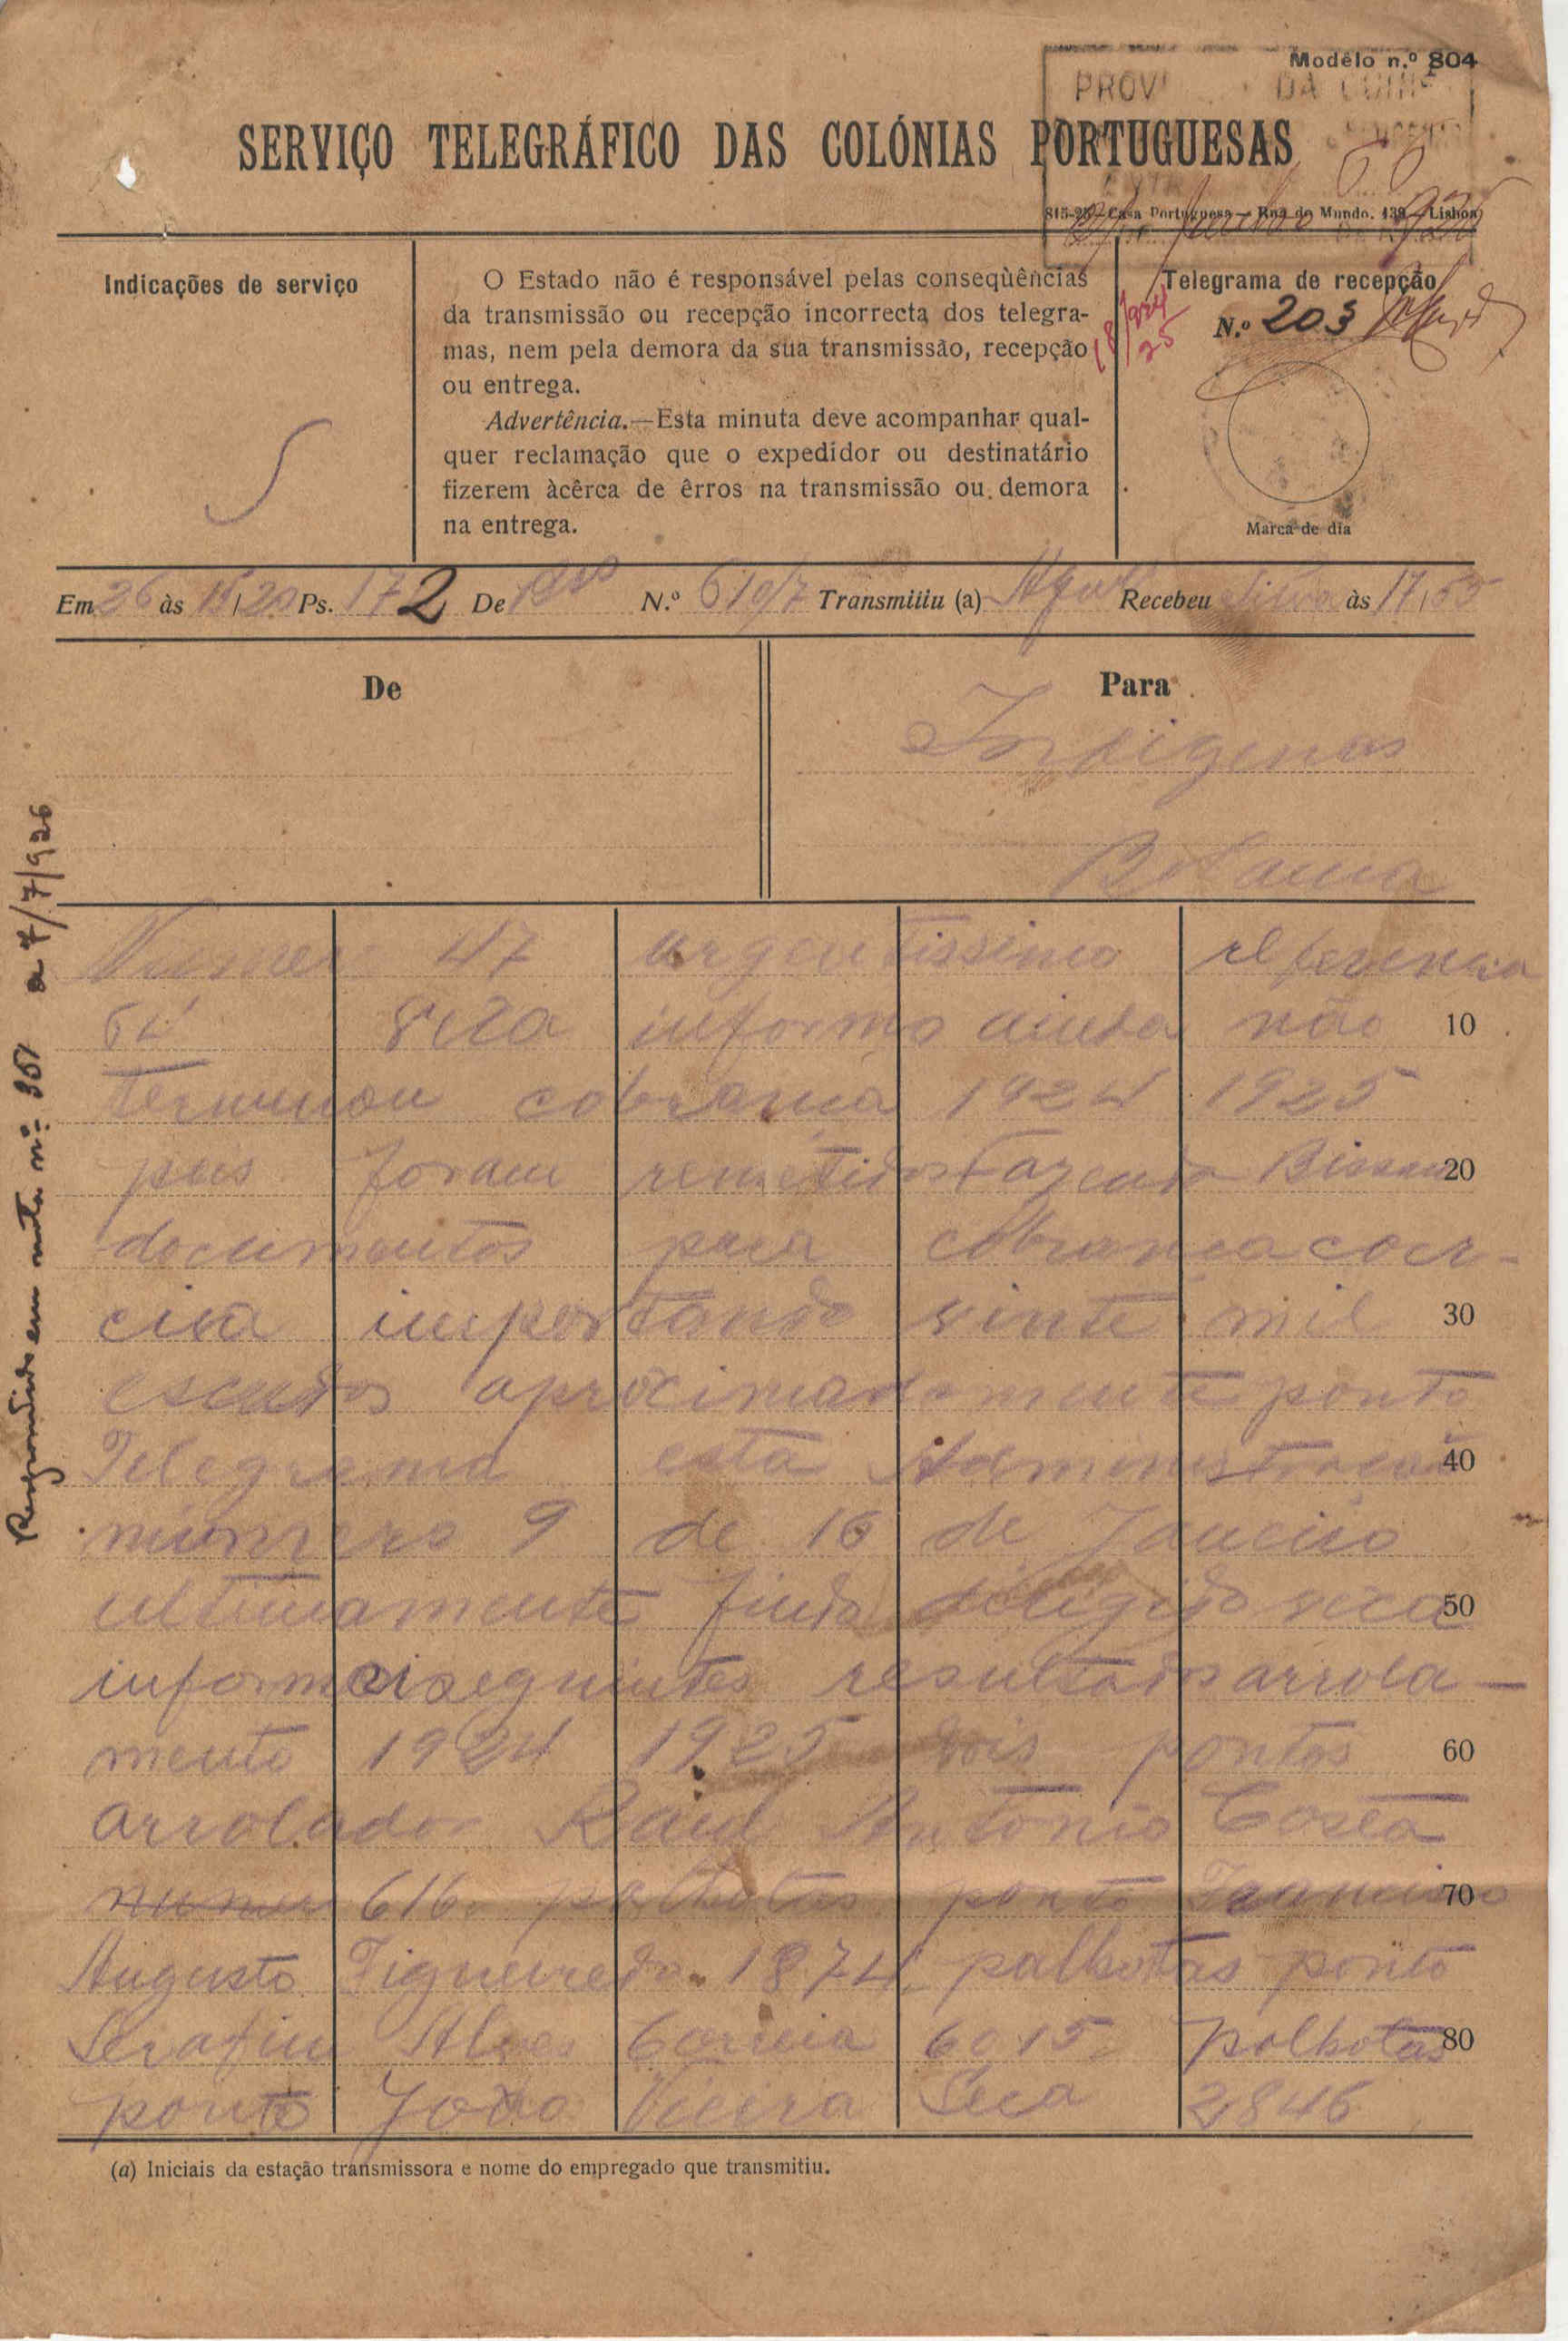 Modêlo n.º 804
PROV DA GUINÉ
SERVIÇO TELEGRÁFICO DAS COLÓNIAS PORTUGUESAS
815-25—Casa Portuguesa—Rua do Mundo, 139—Lisboa
Indicações de serviço
O Estado não é responsável pelas conseqùências
da transmissão ou recepção incorrecta dos telegra-
mas, nem pela demora da sua transmissão, recepção
ou entrega.
Advertência.—Esta minuta deve acompanhar qual-
quer reclamação que o expedidor ou destinatário
fizerem àcêrca de êrros na transmissão ou demora
na entrega.
Telegrama de recepção
N.º 203
Marca de dia
Em 26 às 15/20 Ps. 172 De N.º 619/7 Transmiiiu (a) Recebeu Silva às 17,55
De
Para
Indigenas
Bolama
Numero 47 urgentissimo referencia
64 vexa informo ainda não 10
terminou cobrança 1924 1925
pois foram remetidos Fazenda Bissau 20
documentos para cobrança coer-
civa importando vinte mil 30
escudos aproximadamente ponto
Telegrama esta Administração 40
número 9 de 16 de Janeiro
ultimamente findo dirigido vexa 50
informei seguintes resultados arrola-
mento 1924 1925 dois pontos 60
arrolador Raul Antonio Costa
numero 616 palhotas ponto Francisco 70
Augusto Figueiredo 1874 palhotas ponto
Serafim Alves Correia 6015 palhotas 80
ponto João Vieira Seca 2846
(a) Iniciais da estação transmissora e nome do empregado que transmitiu.
Respondido em nota n.º 351 a 7/7/926